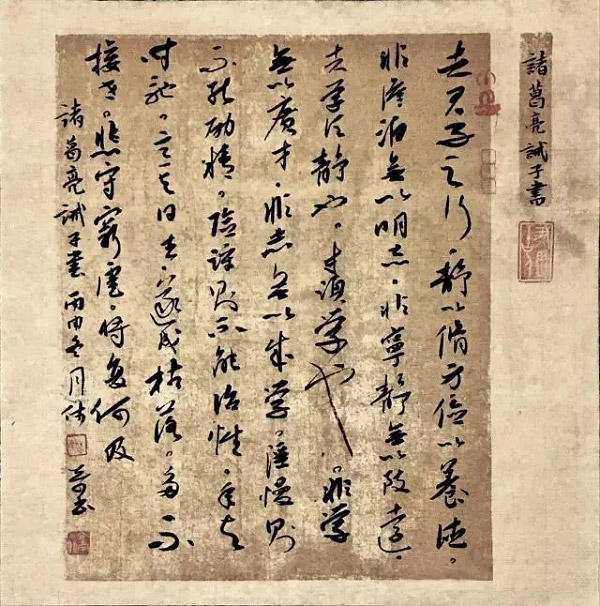 諸葛亮誡子書
夫君子之行。靜以脩身儉以養德。
非澹泊無以明志。非寧靜無以致遠。
夫学须静也。才須学也。非学
無以廣才。非志無以成学。淫慢則
不能勵精。險躁則不能治性。年与
时馳。意与日去。遂成枯落。多不
接世。悲守窮廬。將復何及
諸葛亮誡子書丙申冬月